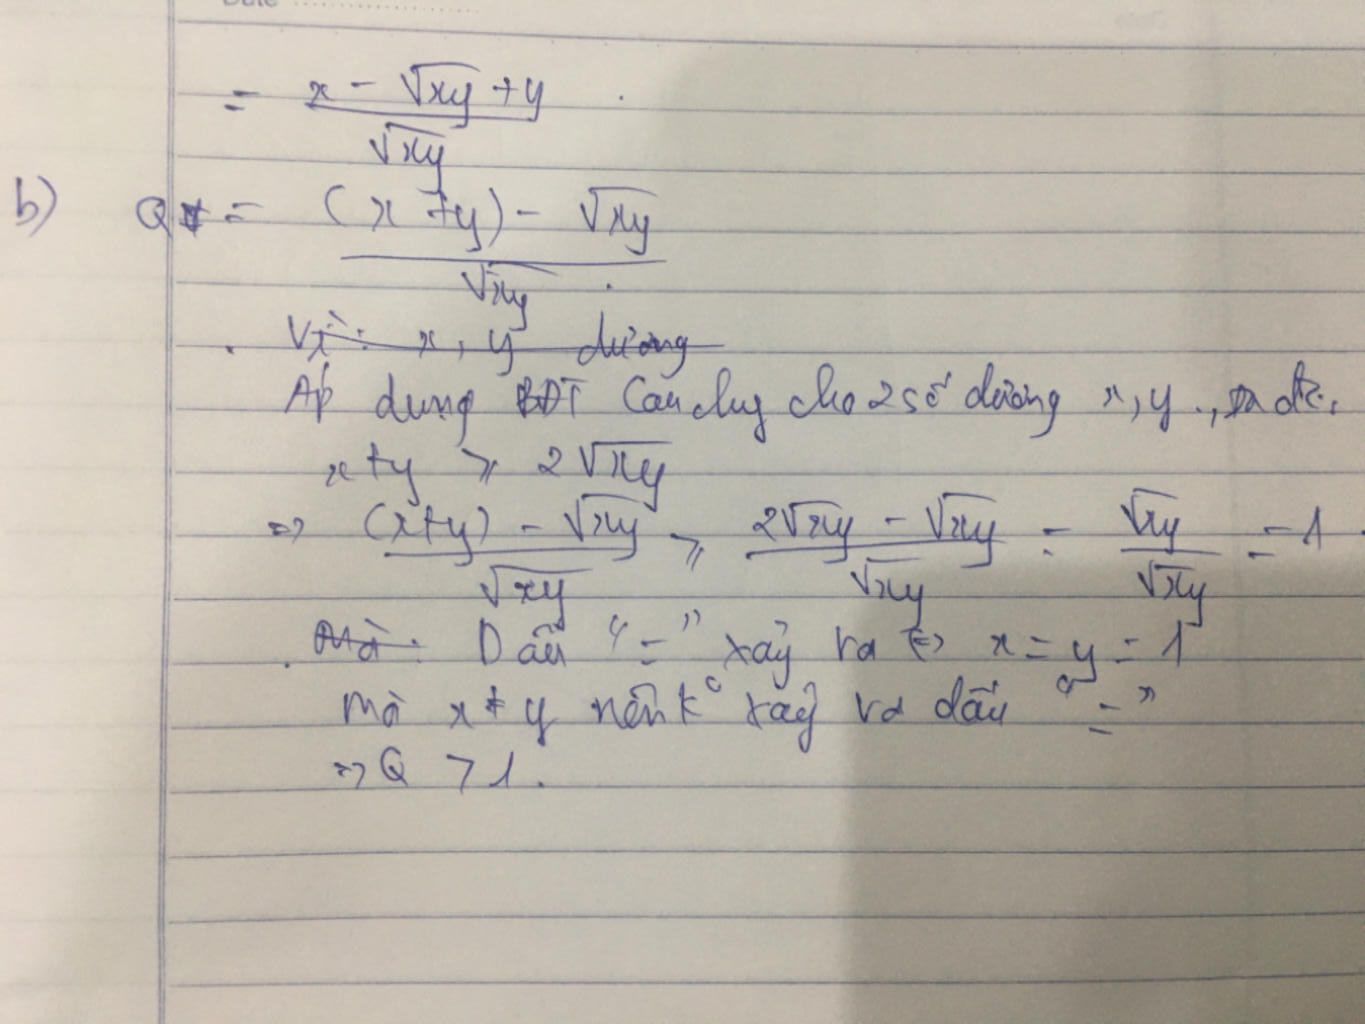 Date
= (x - √xy + y) / √xy
b) Q = ((x + y) - √xy) / √xy
Vì: x, y dương
Áp dụng BĐT Cauchy cho 2 số dương x, y., ta đc:
x + y ⩾ 2√xy
=> ((x+y) - √xy) / √xy ⩾ (2√xy - √xy) / √xy = √xy / √xy = 1
Mà: Dấu "=" xảy ra <=> x = y = 1
Mà x ≠ y nên k° xảy ra dấu "="
=> Q > 1.